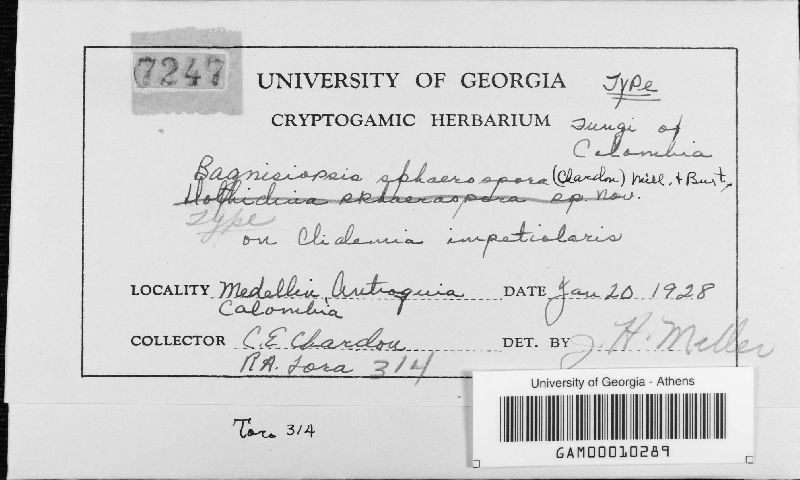 7247
UNIVERSITY OF GEORGIA
Type
CRYPTOGAMIC HERBARIUM
Fungi of
Colombia
Bagnisiopsis sphaerospora (Chardon) Mill. & Burt.
Dothidina sphaerospora sp. nov.
Type
on Clidemia impetiolaris
LOCALITY Medellin, Antioquia DATE Jan 20 1928
Colombia
COLLECTOR C.E. Chardon DET. BY J. H. Miller
R.A. Toro 314
University of Georgia - Athens
GAM00010289
Toro 314